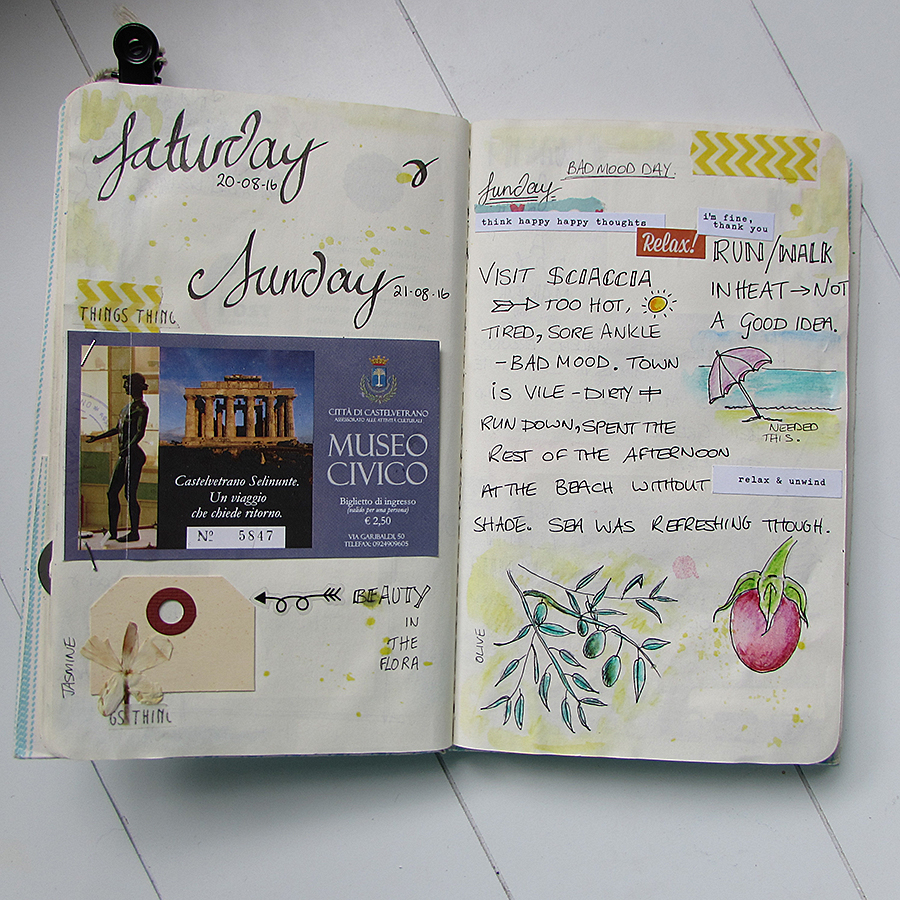 Saturday
20-08-16
&
Sunday
21-08-16
THINGS THING
Castelvetrano Selinunte.
Un viaggio
che chiede ritorno.
Nº 5847
CITTÀ DI CASTELVETRANO
ASSESSORATO ALLE ATTIVITÀ CULTURALI
MUSEO
CIVICO
Biglietto di ingresso
(valido per una persona)
€ 2,50
VIA GARIBALDI, 50
TELEFAX: 0924909605
JASMINE
GS THING
BEAUTY
IN
THE
FLORA
BAD MOOD DAY.
Sunday
think happy happy thoughts
Relax!
i'm fine,
thank you
VISIT SCIACCIA
TOO HOT,
TIRED, SORE ANKLE
-BAD MOOD. TOWN
IS VILE - DIRTY +
RUN DOWN, SPENT THE
REST OF THE AFTERNOON
AT THE BEACH WITHOUT
SHADE. SEA WAS REFRESHING THOUGH.
RUN/WALK
IN HEAT → NOT
A GOOD IDEA.
NEEDED
THIS.
relax & unwind
OLIVE